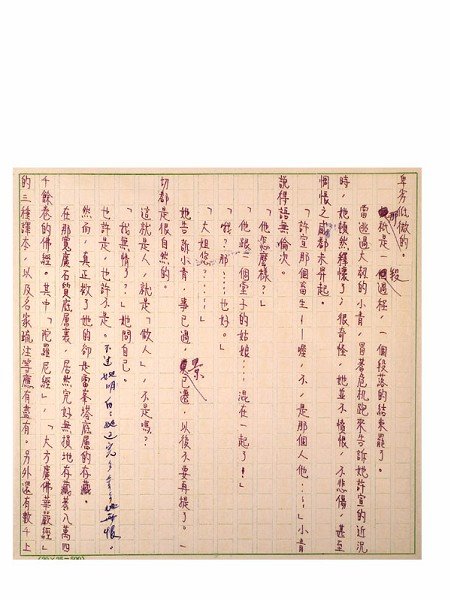 卑劣低做的。
那祇是一個過程，一個段落的結束罷了。
當逃過大殺的小青，冒著危机跑來告訴她許宣的近況
時，她頓然釋懷了；很奇怪，她並不憤恨，不悲傷，甚至
惆悵之感都未昇起。
「許宣那個畜生！——喔，不，是那個人他……」小青
說得語無倫次。
「他怎麼樣？」
「他跟一個堂子的姑娘……混在一起了！」
「哦？那……也好。」
「大姐您？……」
她告訴小青 事已過 景已遷 以後不要再提了。一
切都是很自然的。
這就是人，就是「做人」，不是嗎？
「我無情了？」她問自己。
也許是，也許不是。不過她明白
然而，真正救了她的卻是雷峯塔底層的存藏。
在那寬廣石質底層裏，居然完好無損地存藏著八萬四
千餘卷的佛經。其中「陀羅尼經」，「大方廣佛華嚴經」
的三種譯本，以及名家疏注等應有盡有。另外還有數千上